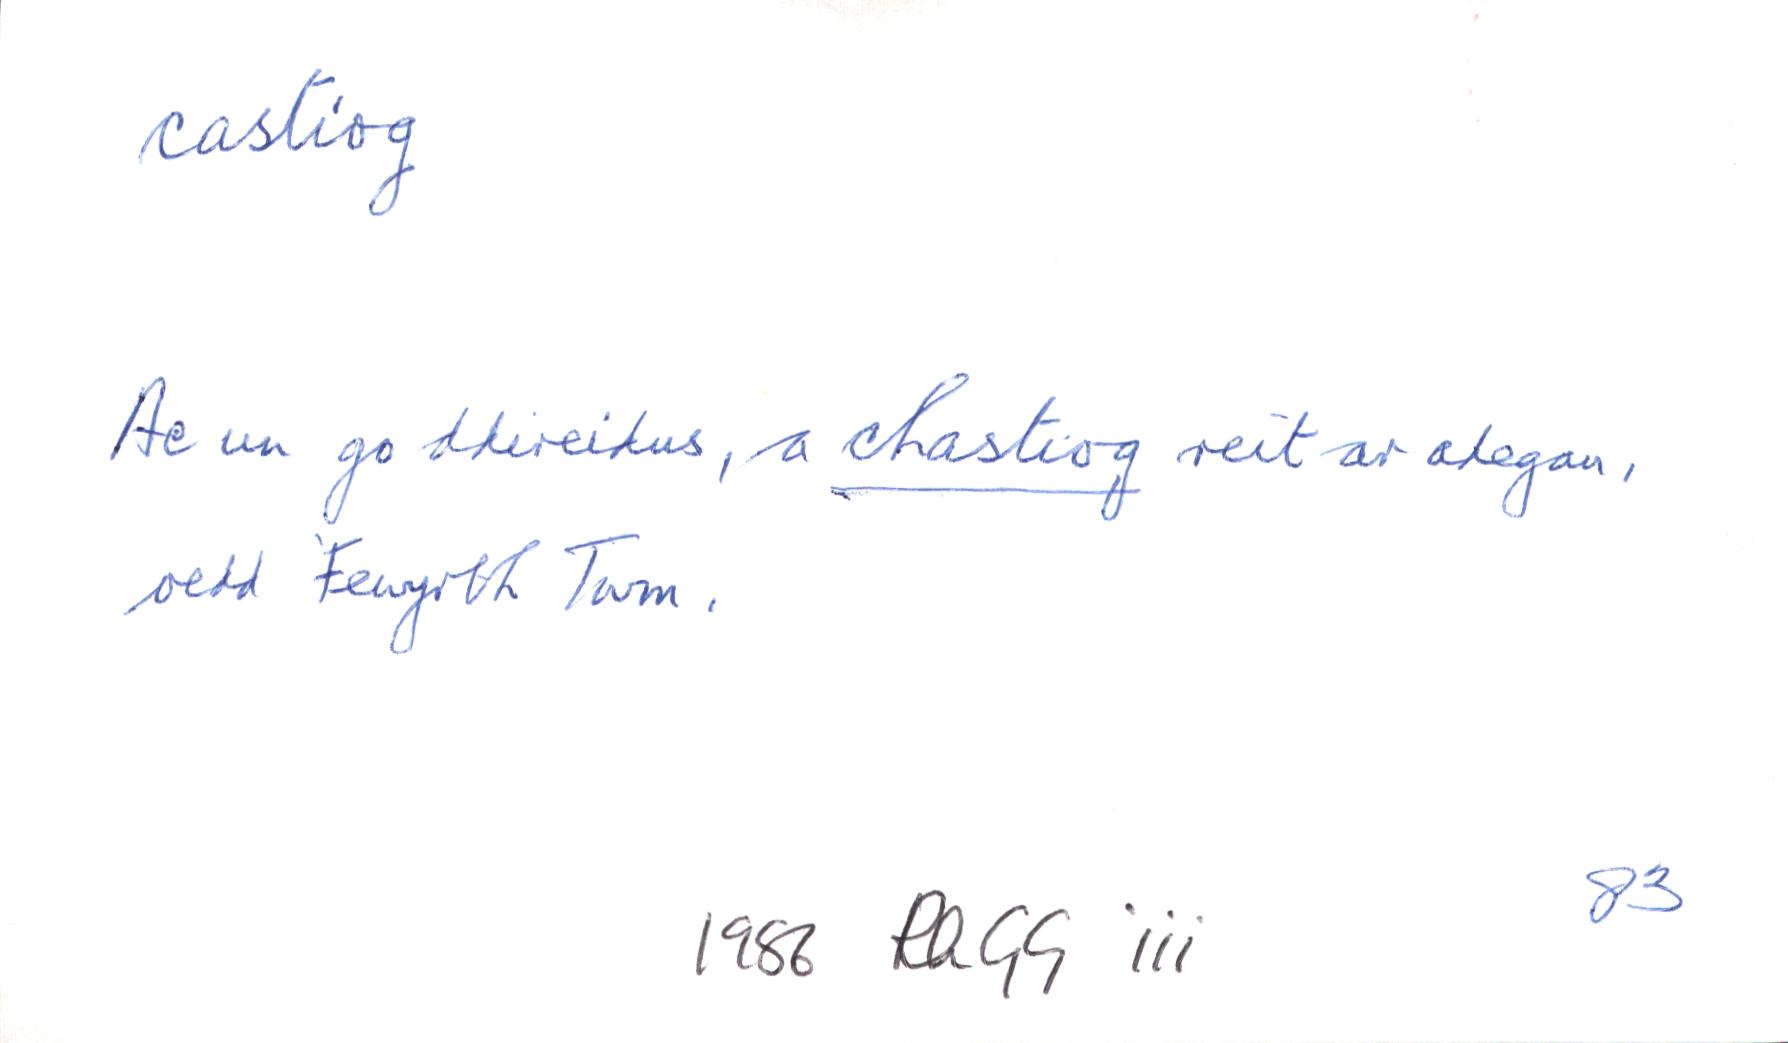 castiog
Ac un go ddireidus, a chastiog reit ar adegau,
oedd Fewyrth Twm.
83
1986 RAGG iii